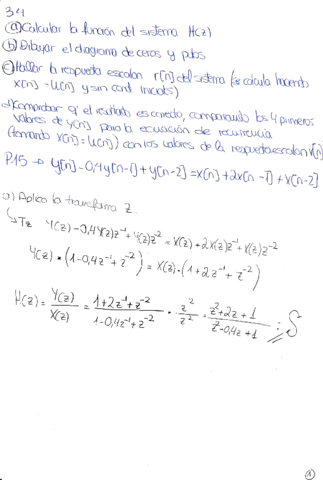 3.4
a) Calcular la función del sistema H(z)
b) Dibujar el diagrama de ceros y polos
c) Hallar la respuesta escalon r[n] del sistema (se calcula haciendo
x[n] = u[n] y sin cond iniciales)
d) Comprobar q el resultado es correcto, comparando los 4 primeros
valores de y[n] para la ecuación de recurrencia
(tomando x[n] = u[n]) con los valores de la respuesta escalon r[n]
P.15 → y[n] - 0,4y[n-1] + y[n-2] = x[n] + 2x[n-1] + x[n-2]
a) Aplico la transforma z.
↳ Tz Y(z) - 0,4Y(z)z⁻¹ + Y(z)z⁻² = X(z) + 2X(z)z⁻¹ + X(z)z⁻²
Y(z) • (1 - 0,4z⁻¹ + z⁻²) = X(z) • (1 + 2z⁻¹ + z⁻²)
H(z) = Y(z)/X(z) = (1 + 2z⁻¹ + z⁻²)/(1 - 0,4z⁻¹ + z⁻²) • z²/z² = (z² + 2z + 1)/(z² - 0,4z + 1)
1